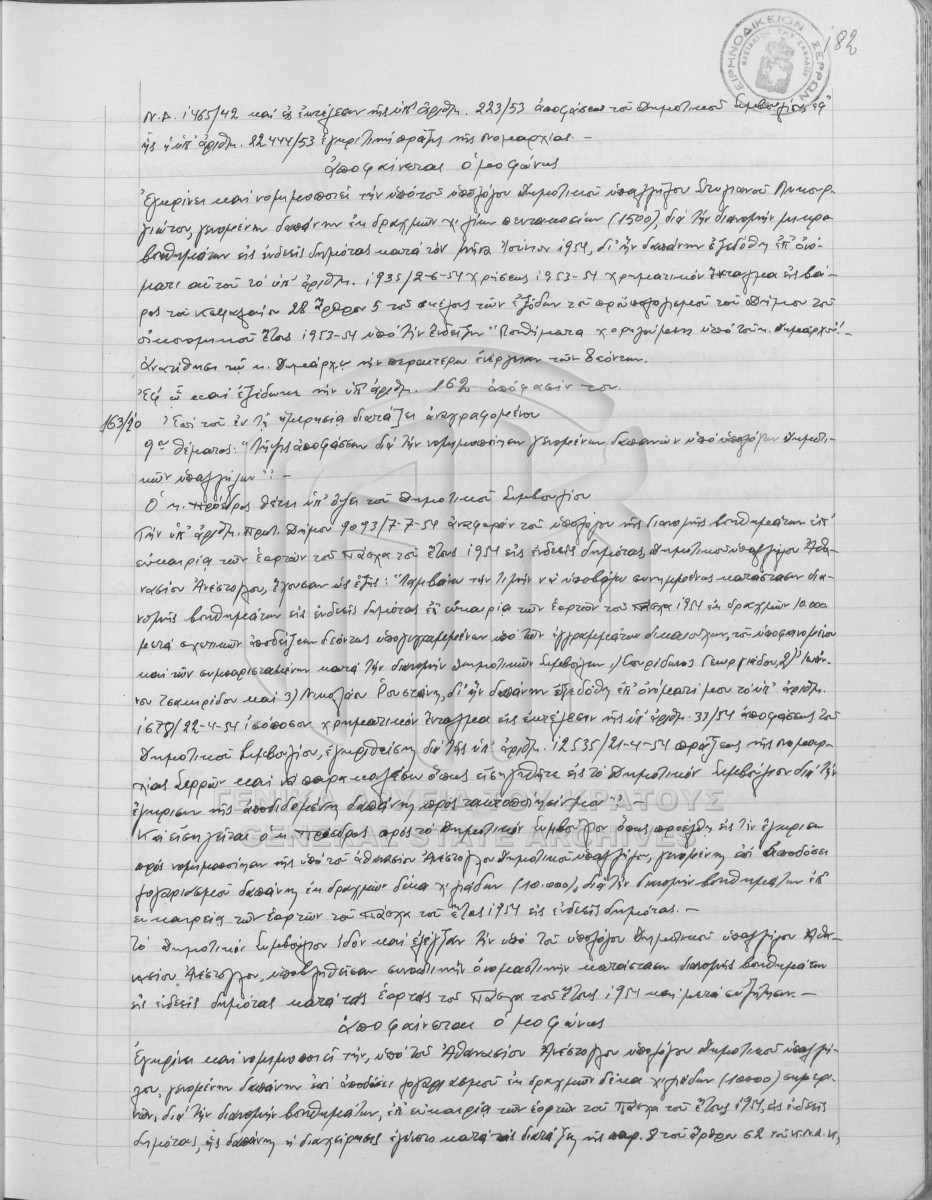 ΕΙΡΗΝΟΔΙΚΕΙΟΝ ΣΕΡΡΩΝ
182
Ν.Δ. 1465/42 καί εἰς ἐκτέλεσιν τῆς ὑπ' ἀριθμ. 223/53 ἀποφάσεως τοῦ Δημοτικοῦ Συμβουλίου, ἐφ'
ἧς ἡ ὑπ' ἀριθμ. 22444/53 ἐγκριτική πρᾶξις τῆς Νομαρχίας. —
Ἀποφαίνεται ὁμοφώνως
Ἐγκρίνει καί νομιμοποιεῖ τήν ὑπό τοῦ ὑπολόγου Δημοτικοῦ ὑπαλλήλου Στυλιανοῦ
γενομένην δαπάνην ἐκ δραχμῶν χιλίων πεντακοσίων (1500), διά τήν διανομήν μικρο
βοηθημάτων εἰς ἐνδεεῖς δημότας κατά τόν μῆνα Ἰούνιον 1954, δι' ἥν δαπάνην ἐξεδόθη ἐπ' ὀνό-
ματι αὐτοῦ τό ὑπ' ἀριθμ. 1935/2-6-54 χρήσεως 1953-54 χρηματικόν ἔνταλμα εἰς βά-
ρος τοῦ Κεφαλαίου 28 ἄρθρον 5 τοῦ σκέλους τῶν ἐξόδων τοῦ προϋπολογισμοῦ τοῦ Δήμου τοῦ
οἰκονομικοῦ ἔτους 1953-54 ὑπό τήν ἔνδειξιν "Βοηθήματα χορηγούμενα ὑπό τοῦ κ. Δημάρχου". -
Ἀνατίθησι τῷ κ. Δημάρχῳ τήν περαιτέρω ἐνέργειαν τῶν δεόντων.
Ἐφ' ᾧ καί ἐξεδόθη τήν ὑπ' ἀριθμ. 162 ἀπόφασίν του.
163/10 Ἐπί τοῦ ἐν τῇ ἡμερησίᾳ διατάξει ἀναγραφομένου
9ου θέματος: "Λῆψις ἀποφάσεως διά τήν νομιμοποίησιν γενομένων δαπανῶν ὑπό ὑπολόγων Δημοτι-
κῶν ὑπαλλήλων": —
Ὁ κ. Πρόεδρος θέτει ὑπ' ὄψει τοῦ Δημοτικοῦ Συμβουλίου
Τήν ὑπ' ἀριθμ. πρωτ. Δήμου 9093/7-7-54 ἀναφοράν τοῦ ὑπολόγου τῆς διανομῆς βοηθημάτων ἐπ'
εὐκαιρίᾳ τῶν ἑορτῶν τοῦ Πάσχα τοῦ ἔτους 1954 εἰς ἐνδεεῖς δημότας, Δημοτικοῦ ὑπαλλήλου Ἀθα-
νασίου, ἔχουσαν ὡς ἑξῆς: "Λαμβάνω τήν τιμήν νά ὑποβάλω συνημμένως κατάστασιν δια-
νομῆς βοηθημάτων εἰς ἐνδεεῖς δημότας ἐπ' εὐκαιρίᾳ τῶν ἑορτῶν τοῦ Πάσχα 1954 ἐκ δραχμῶν 10.000
μετά σχετικῶν ἀποδείξεων δεόντως ὑπογεγραμμένων ὑπό τῶν ἐγγραμμάτων δικαιούχων, τοῦ ὑποφαινομένου
καί τῶν συμπαρισταμένων κατά τήν διανομήν Δημοτικῶν Συμβούλων 1) Σπυρίδωνος Γεωργιάδου, 2) Ἰωάν-
νου Τσακιρίδου καί 3) Νικολάου Ρουστάνη, δι' ἥν δαπάνην ἐξεδόθη ἐπ' ὀνόματί μου τό ὑπ' ἀριθμ.
1678/22-4-54 ἰσόποσον χρηματικόν ἔνταλμα εἰς ἐκτέλεσιν τῆς ὑπ' ἀριθμ. 33/54 ἀποφάσεως τοῦ
Δημοτικοῦ Συμβουλίου, ἐγκριθείσης διά τῆς ὑπ' ἀριθμ. 12535/21-4-54 πράξεως τῆς Νομαρ-
χίας Σερρῶν καί νά παρακαλέσω ὅπως εἰσηγηθῆτε εἰς τό Δημοτικόν Συμβούλιον διά τήν
ἔγκρισιν τῆς ἀποδιδομένης δαπάνης πρός τακτοποίησίν μου": —
Καί εἰσηγεῖται ὁ κ. Πρόεδρος πρός τό Δημοτικόν Συμβούλιον ὅπως προέλθῃ εἰς τήν ἔγκρισιν
πρός νομιμοποίησιν τῆς ὑπό τοῦ Ἀθανασίου Δημοτικοῦ ὑπαλλήλου, γενομένης ἐπί ἀποδόσει
λογαριασμοῦ δαπάνης ἐκ δραχμῶν δέκα χιλιάδων (10.000), διά τήν διανομήν βοηθημάτων ἐπ'
εὐκαιρίᾳ τῶν ἑορτῶν τοῦ Πάσχα τοῦ ἔτους 1954 εἰς ἐνδεεῖς δημότας. —
Τό Δημοτικόν Συμβούλιον ἰδόν καί ἐξελέγξαν τήν ὑπό τοῦ ὑπολόγου Δημοτικοῦ ὑπαλλήλου Ἀθα-
νασίου, ὑποβληθεῖσαν συνοπτικήν ὀνομαστικήν κατάστασιν διανομῆς βοηθημάτων
εἰς ἐνδεεῖς δημότας κατά τάς ἑορτάς τοῦ Πάσχα τοῦ ἔτους 1954 καί μετά συζήτησιν. —
Ἀποφαίνεται ὁμοφώνως
Ἐγκρίνει καί νομιμοποιεῖ τήν, ὑπό τοῦ Ἀθανασίου ὑπολόγου Δημοτικοῦ ὑπαλλή-
λου, γενομένην δαπάνην ἐπί ἀποδόσει λογαριασμοῦ ἐκ δραχμῶν δέκα χιλιάδων (10000)
διά τήν διανομήν βοηθημάτων, ἐπ' εὐκαιρίᾳ τῶν ἑορτῶν τοῦ Πάσχα τοῦ ἔτους 1954, εἰς ἐνδεεῖς
δημότας, ἧς δαπάνης ἡ διαχείρησις ἐγένετο κατά τάς διατάξεις τῆς παρ. 8 τοῦ ἄρθρου 62 τοῦ
ΓΕΝΙΚΑ ΑΡΧΕΙΑ ΤΟΥ ΚΡΑΤΟΥΣ
GENERAL STATE ARCHIVES